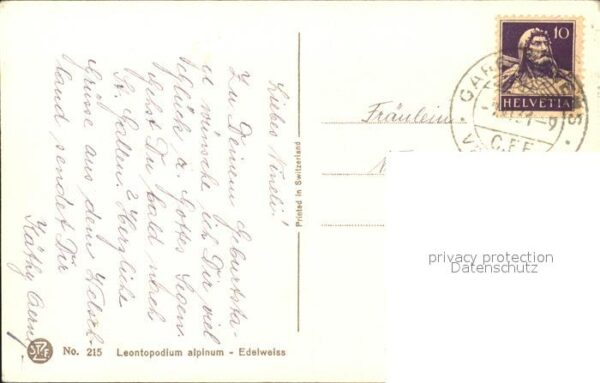 Liebes Vineli!
Zu Deinem Geburtsta-
ge wünsche ich Dir viel
Glück u. Gottes Segen.
Gehst Du bald nach
St. Gallen? Herzliche
Grüsse aus dem Welsch-
land sendet Dir
Käthy
Printed in Switzerland
Fräulein
10
HELVETIA
C.F.F.
privacy protection
Datenschutz
No. 215 Leontopodium alpinum - Edelweiss